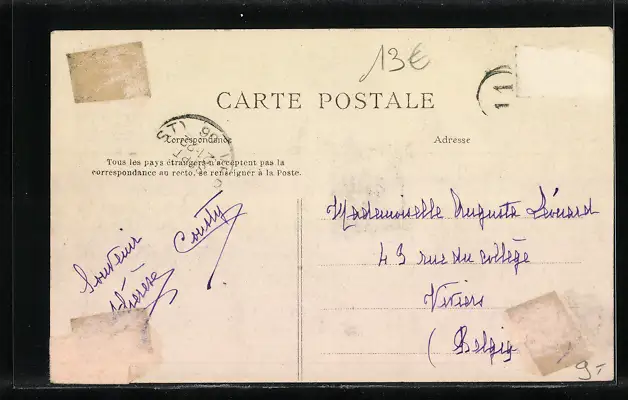 13€
CARTE POSTALE
11
Correspondance
Adresse
Tous les pays étrangers n'acceptent pas la
correspondance au recto, se renseigner à la Poste.
Mademoiselle Augusta Léonard
43 rue du collège
(Belgiq
Souvenir
Thérèse
9-